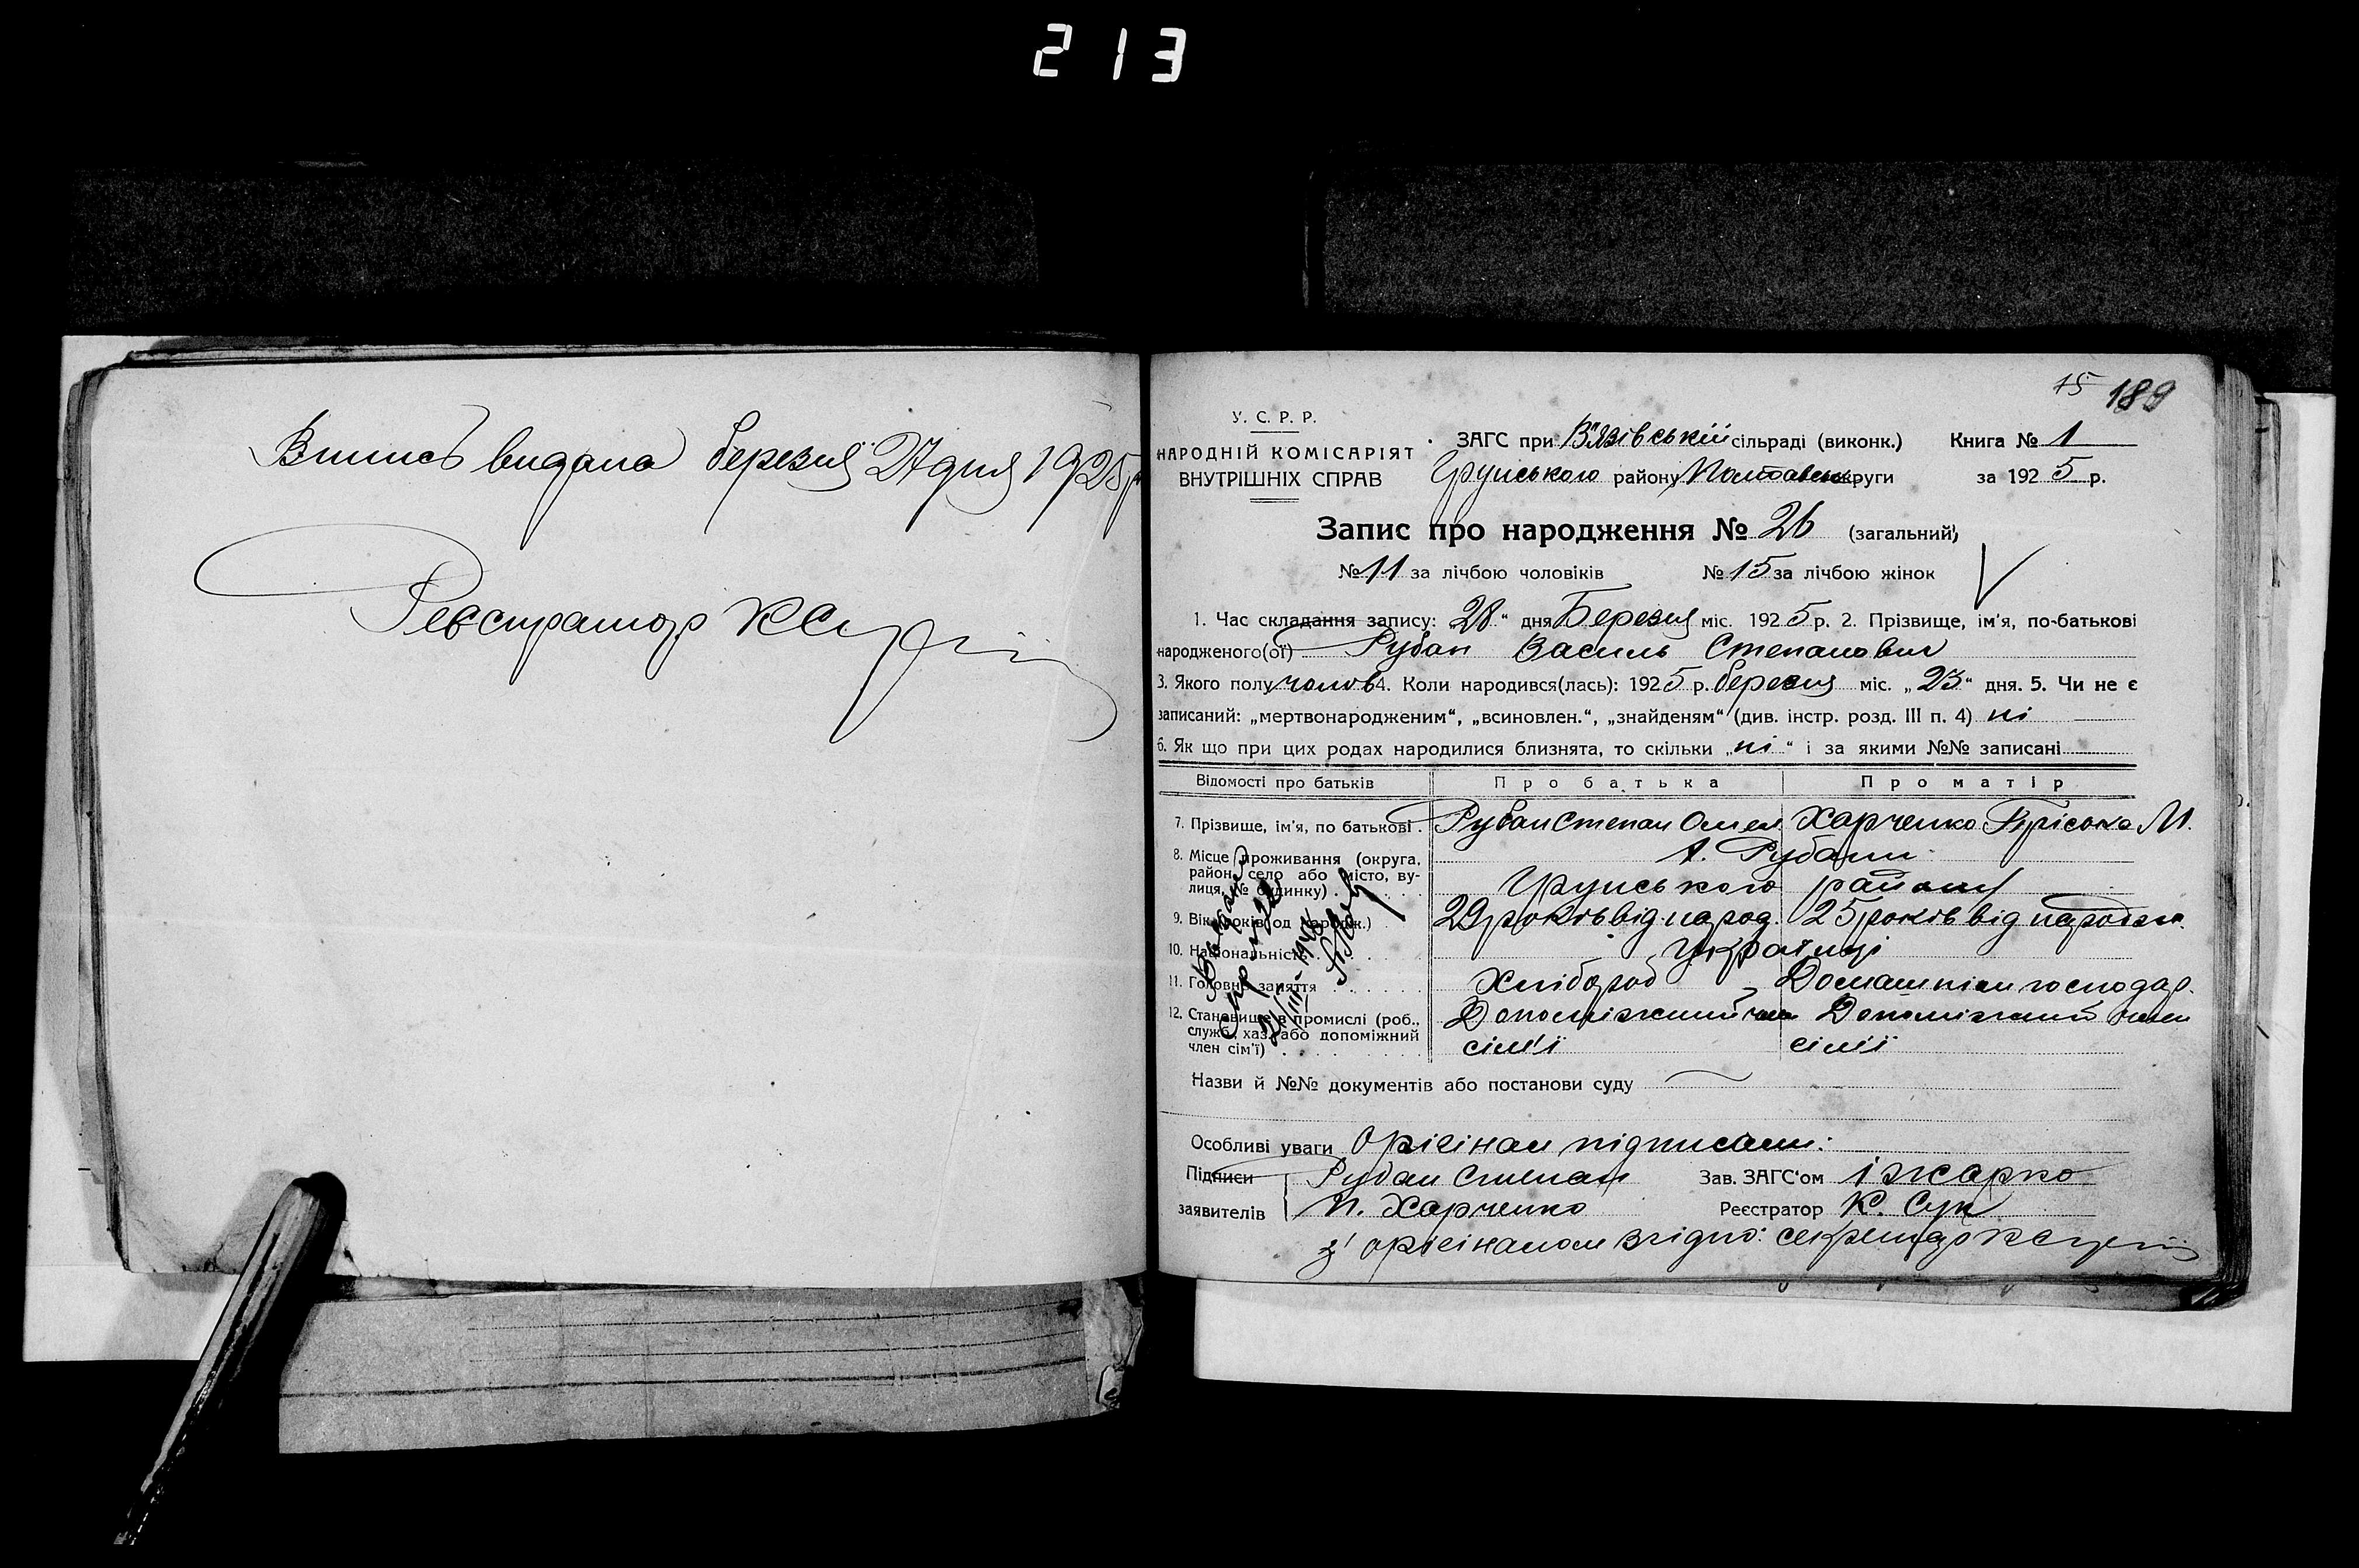 213
Впись видана березня 27 дня 1925 р
Реєстратор К Сук
15 189
У. С. Р. Р.
НАРОДНІЙ КОМІСАРІЯТ
ВНУТРІШНІХ СПРАВ
ЗАГС при В'язівській сільраді (виконк.) Книга № 1
Грунського району Полтавськ округи за 1925 р.
Запис про народження № 26 (загальний)
№ 11 за лічбою чоловіків № 15 за лічбою жінок
1. Час складання запису: „28“ дня Березня міс. 1925 р. 2. Прізвище, ім'я, по-батькові
народженого(ої) Рубан Василь Степанович
3. Якого полу чолов 4. Коли народився(лась): 1925 р. березня міс. „23“ дня. 5. Чи не є
записаний: „мертвонародженим“, „всиновлен.“, „знайденям“ (див. інстр. розд. III п. 4) ні
6. Як що при цих родах народилися близнята, то скільки „ні“ і за якими №№ записані
Відомості про батьків Про батька Про матір
7. Прізвище, ім'я, по батькові . Рубан Степан Омел Харченко М.
8. Місце проживання (округа, х. Рубани
район, село або місто, ву-
лиця, № будинку) Грунського району
9. Вік (років од народж.) 29 років від народ. 25 років від народж.
10. Національність Українці
11. Головне заняття Хлібороб Домашнім господар.
12. Становище в промислі (роб., Допоміжний член Допоміжний член
служб., хаз. або допоміжний
член сім'ї) сім'ї сім'ї
Назви й №№ документів або постанови суду
Особливі уваги Орігінал підписали:
Підписи Рубан Степан Зав. ЗАГС'ом І Жарко
заявителів П. Харченко Реєстратор К. Сук
з' орігіналом згідно: секретар К Сук